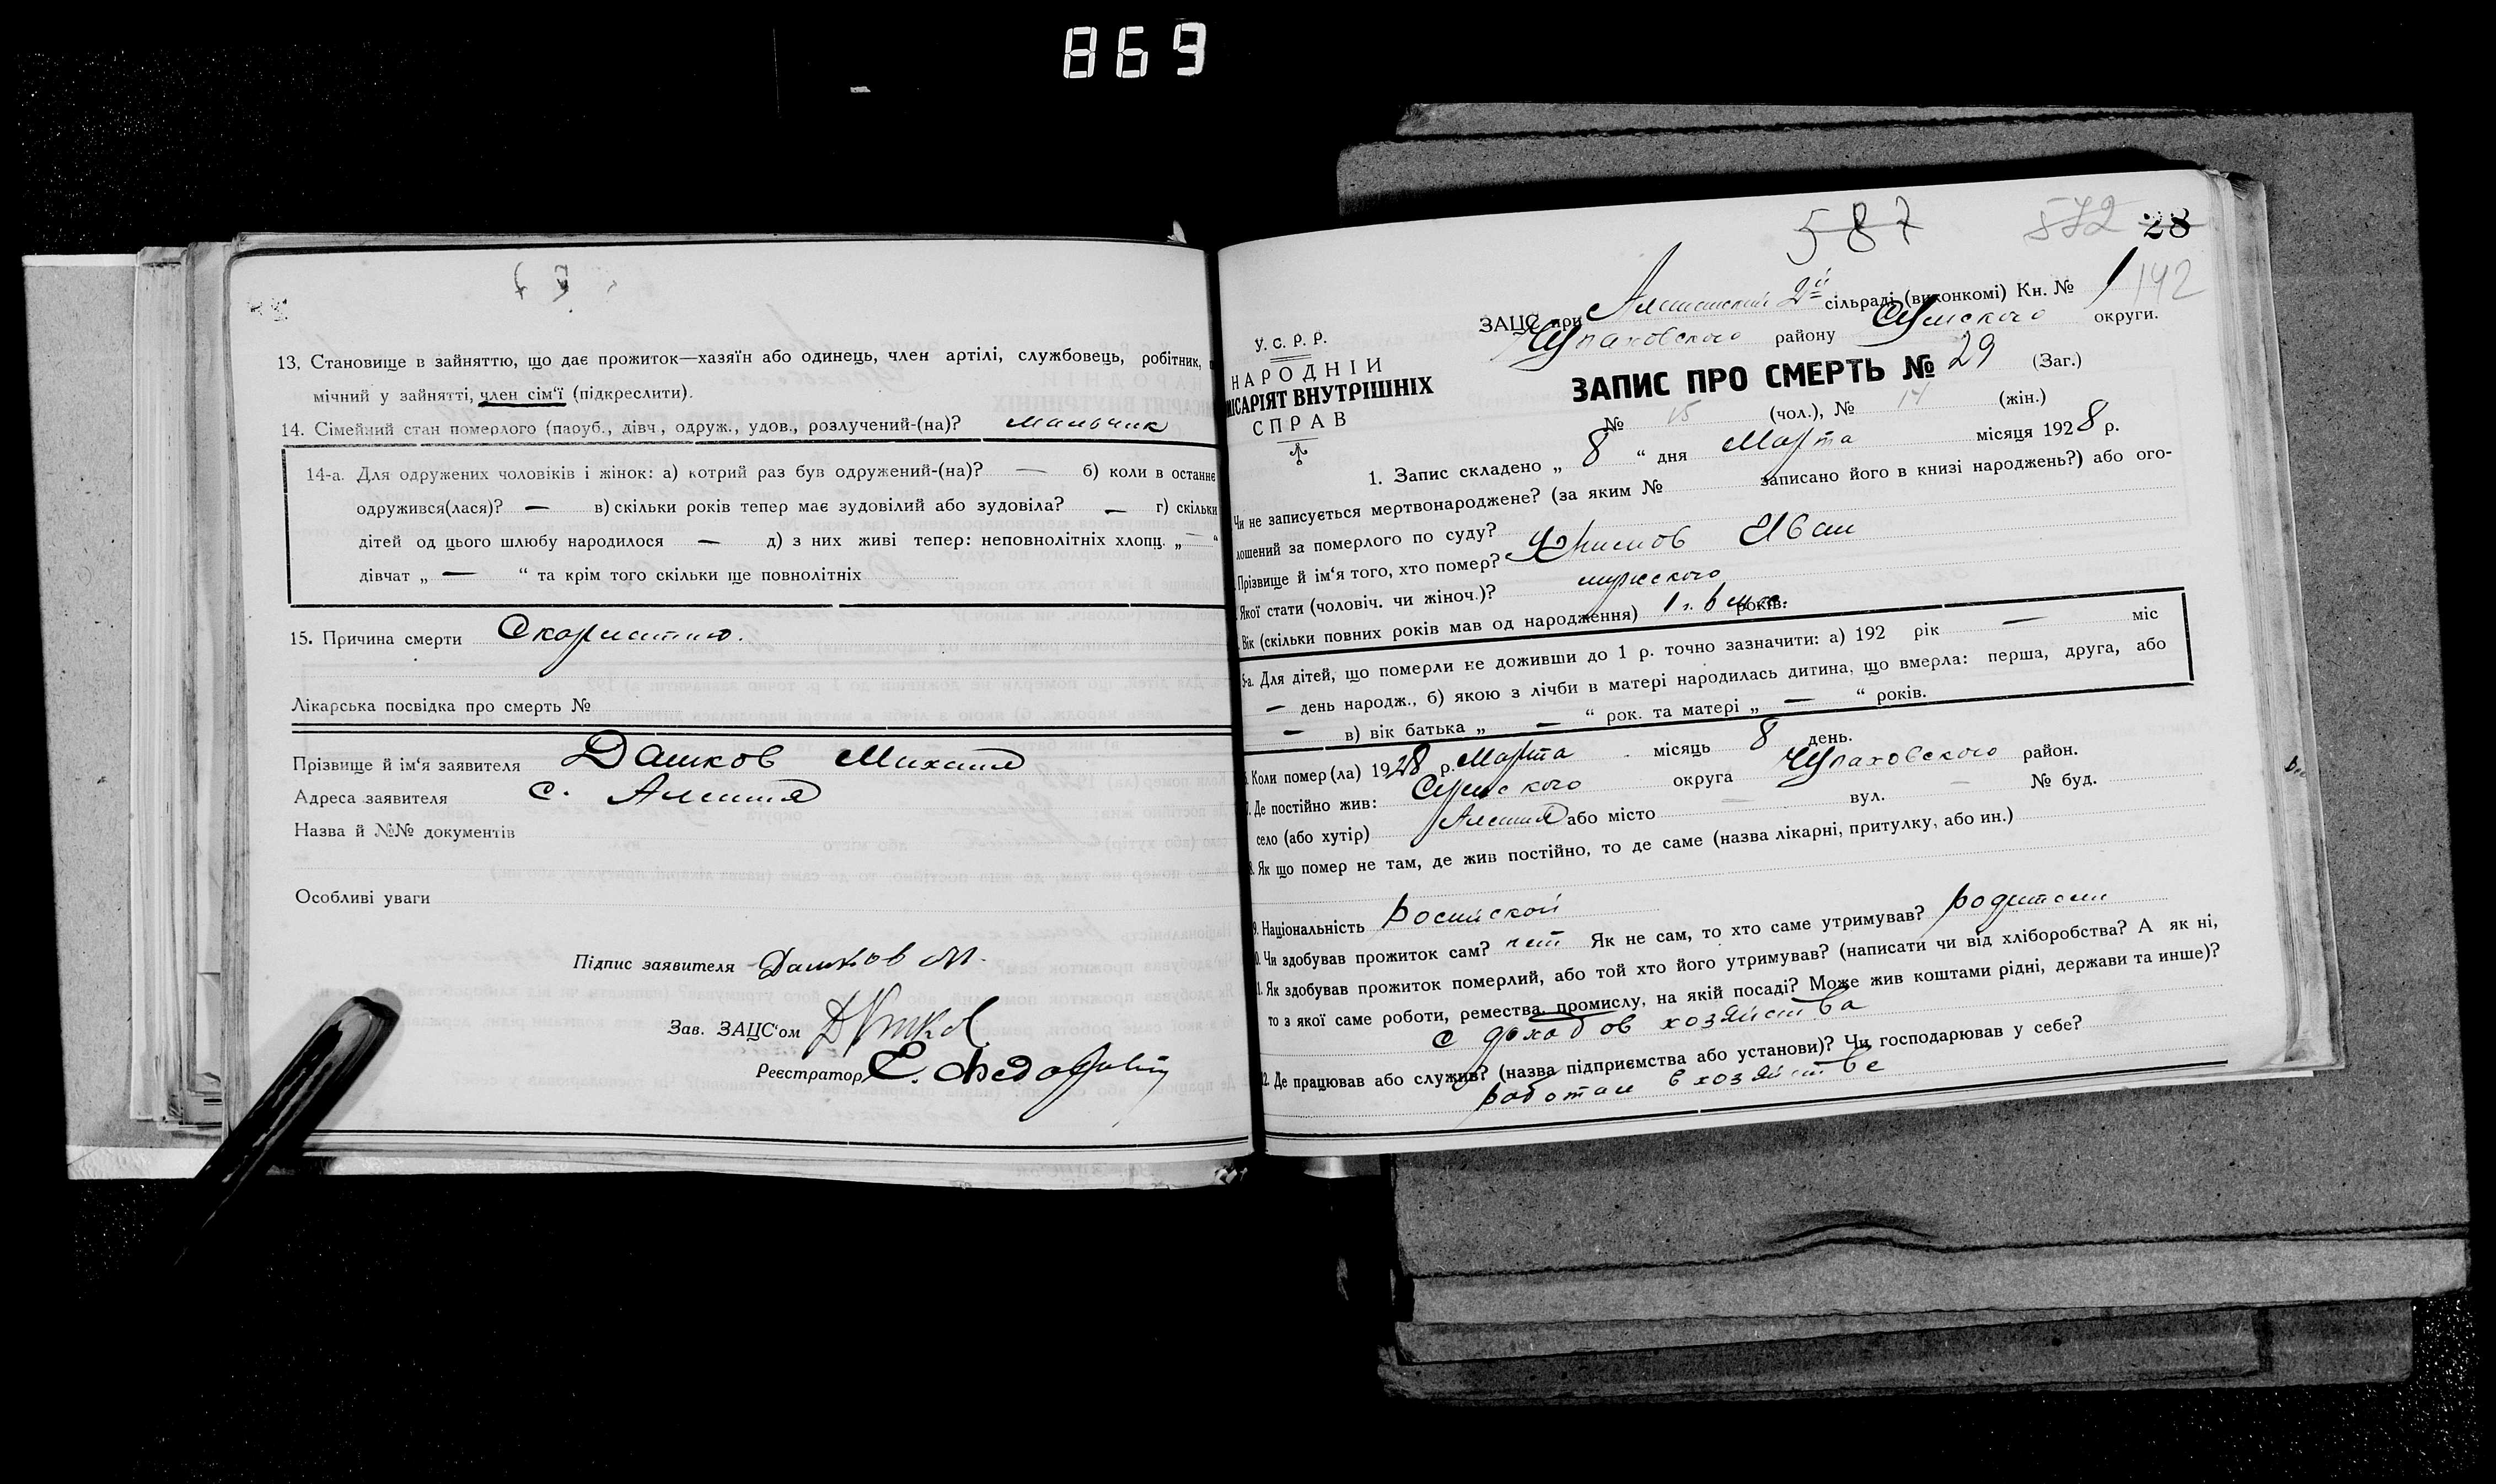 869
13. Становище в зайняттю, що дає прожиток—хазяїн або одинець, член артілі, службовець, робітник,
мічний у зайнятті, член сім'ї (підкреслити).
14. Сімейний стан померлого (паруб., дівч., одруж., удов., розлучений-(на)? мальчик
14-а. Для одружених чоловіків і жінок: а) котрий раз був одружений-(на)? — б) коли в останнє
одружився(лася)? — в) скільки років тепер має зудовілий або зудовіла? — г) скільки
дітей од цього шлюбу народилося — д) з них живі тепер: неповнолітніх хлопц. „ — “
дівчат „ — “ та крім того скільки ще повнолітніх
15. Причина смерти Скарлатина.
Лікарська посвідка про смерть №
Прізвище й ім'я заявителя Дашков Михаил
Адреса заявителя с. Алешня
Назва й №№ документів
Особливі уваги
Підпис заявителя Дашков М.
Зав. ЗАЦС'ом
Реєстратор Е.
587 572 28
ЗАЦС при Алешанской 2й сільраді (виконкомі) Кн. № 1 142
Чупаховского району Сумского округи.
У. С. Р. Р.
НАРОДНІЙ
МІСАРІЯТ ВНУТРІШНІХ
СПРАВ
ЗАПИС ПРО СМЕРТЬ № 29 (Заг.)
№ 15 (чол.), № 14 (жін.)
1. Запис складено „ 8 “ дня Марта місяця 1928 р.
Чи не записується мертвонароджене? (за яким № записано його в книзі народжень?) або ого-
лошений за померлого по суду?
Прізвище й ім'я того, хто помер? Иван
Якої стати (чоловіч. чи жіноч.)? мужского
Вік (скільки повних років мав од народження) 1 г. 6 мес. років.
5-а. Для дітей, що померли не доживши до 1 р. точно зазначити: а) 192 рік — міс
— день народж., б) якою з лічби в матері народилась дитина, що вмерла: перша, друга, або
— в) вік батька „ — “ рок. та матері „ — “ років.
Коли помер(ла) 1928 р. Марта місяць 8 день.
7. Де постійно жив: Сумского округа Чупаховского район.
село (або хутір) Алешня або місто — вул. — № буд.
8. Як що помер не там, де жив постійно, то де саме (назва лікарні, притулку, або ин.)
9. Національність Росийской
0. Чи здобував прожиток сам? нет Як не сам, то хто саме утримував? родители
1. Як здобував прожиток померлий, або той хто його утримував? (написати чи від хліборобства? А як ні,
то з якої саме роботи, ремества, промислу, на якій посаді? Може жив коштами рідні, держави та инше)?
с доходов хозяйства
12. Де працював або служив? (назва підприємства або установи)? Чи господарював у себе?
работал в хозяйстве